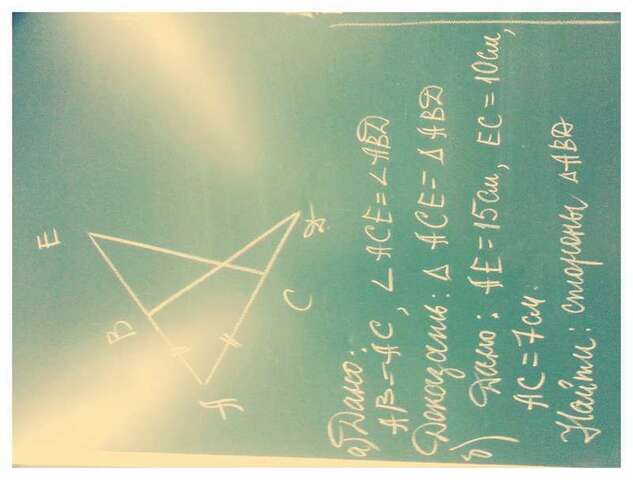 E
B
A
C
D
а) Дано:
AB=AC, ∠ACE=∠ABD
Доказать: △ACE=△ABD
б) Дано: AE=15см, EC=10см,
AC=7см.
Найти: стороны △ABD